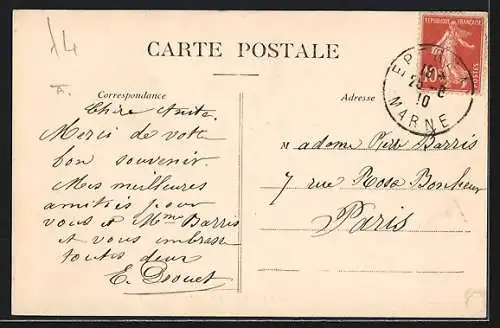 14
CARTE POSTALE
REPUBLIQUE FRANÇAISE
POSTES
EPERNAY
18
25-8
10
MARNE
Correspondance
Adresse
Chère Anita.
Merci de votre
bon souvenir.
Mes meilleures
amitiés pour
vous et Mme Barris
et vous embrasse
toutes deux
E. Drouet
Madame Barris
7 rue Rosa Bonheur
Paris